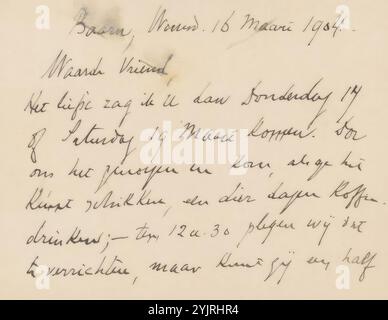 Baarn, Woensd. 16 Maart 1904.
Waarde Vriend,
Het liefst zag ik U dan Donderdag 17
of Saturdag 19 Maart komen. Doe
ons het genoegen en kom, als ge het
kunt schikken, een dier dagen koffie-
drinken; – ten 12 u. 30 plegen wij dat
te verrichten, maar kunt gij een half
alamy
Image ID: 2YJRHR4
www.alamy.com